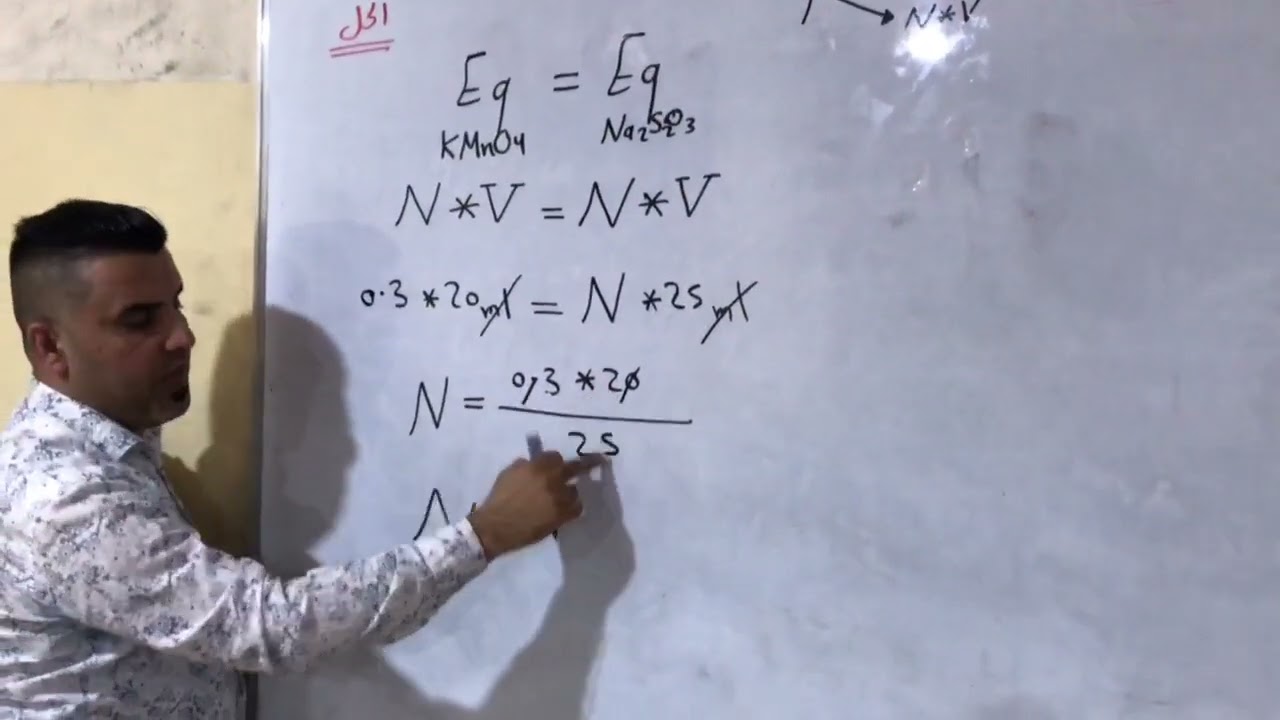 N*V
الحل
Eq = Eq
KMnO4 Na2S2O3
N*V = N*V
0.3 *20ml = N *25ml
N = 0,3 *20
25
N